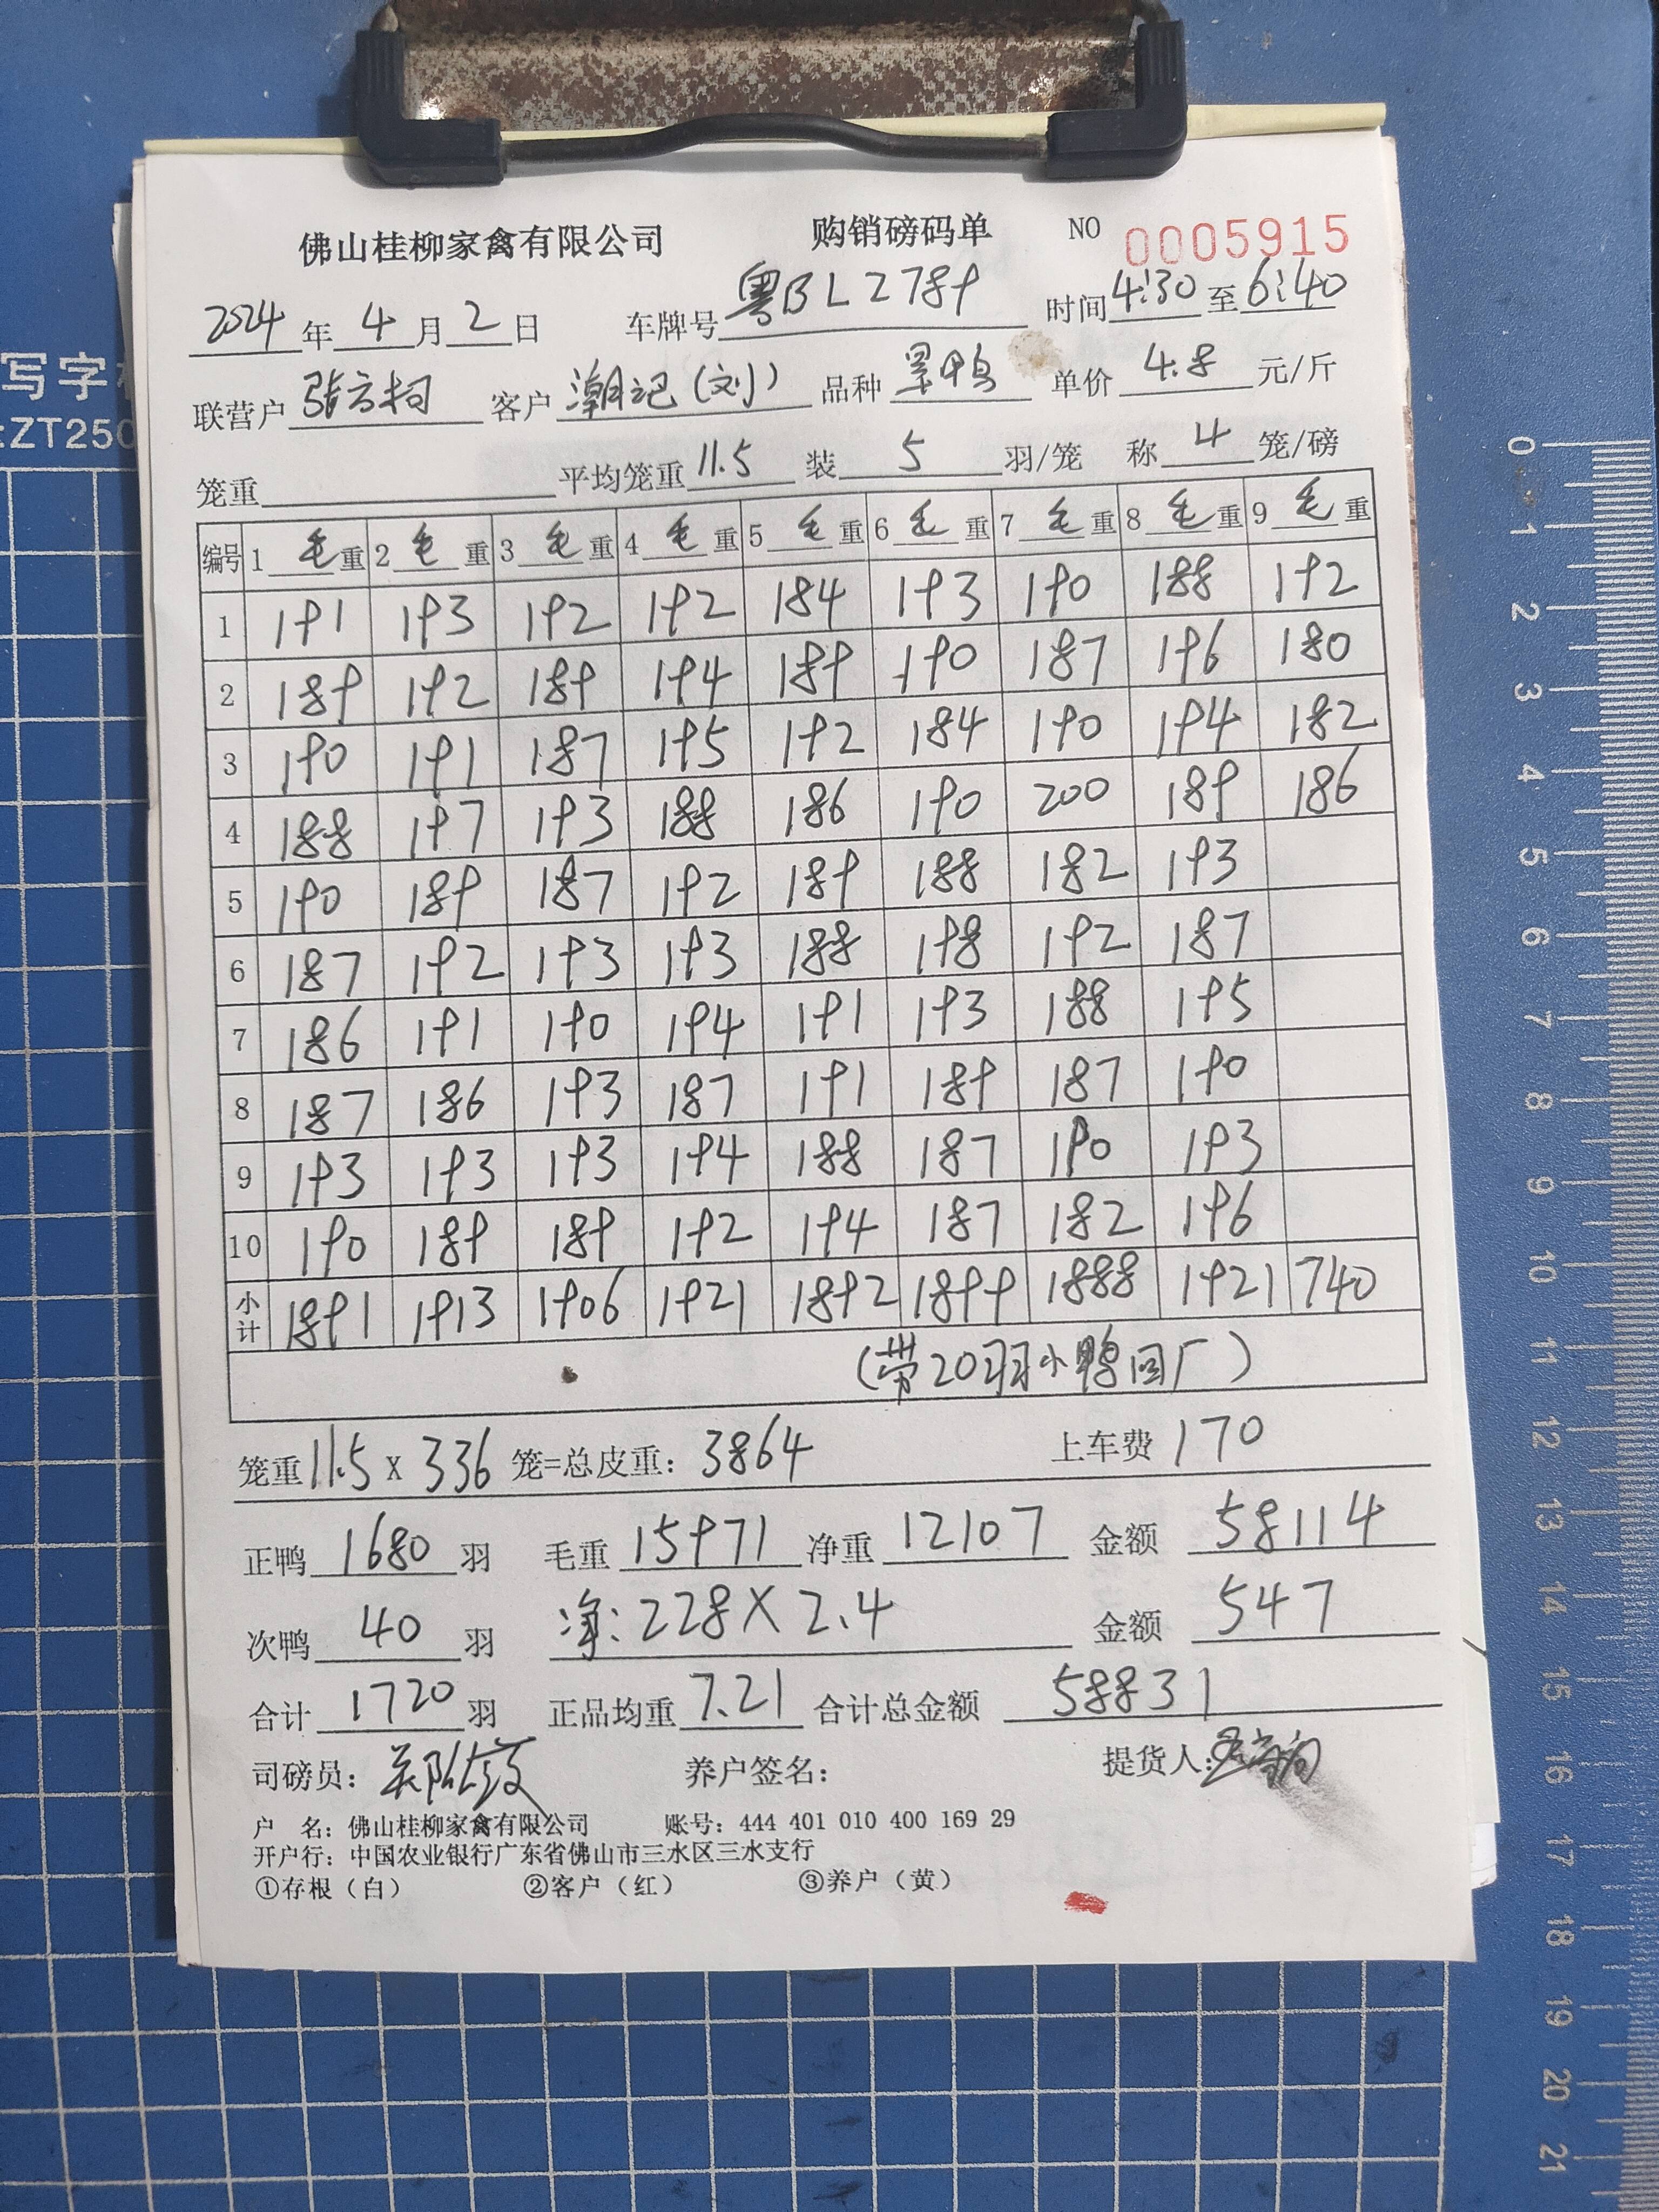 佛山桂柳家禽有限公司 购销磅码单 NO 0005915
2024 年 4 月 2 日 车牌号 粤BLZ789 时间 4:30 至 6:40
联营户 客户 潮记(刘) 品种 单价 4.8 元/斤
笼重 平均笼重 11.5 装 5 羽/笼 称 4 笼/磅
编号 1 毛 重 2 毛 重 3 毛 重 4 毛 重 5 毛 重 6 毛 重 7 毛 重 8 毛 重 9 毛 重
1 191 193 192 192 184 193 190 188 192
2 189 192 189 194 189 190 187 196 180
3 190 191 187 195 192 184 190 194 182
4 188 197 193 188 186 190 200 189 186
5 190 189 187 192 189 188 182 193
6 187 192 193 193 188 198 192 187
7 186 191 190 194 191 193 188 195
8 187 186 193 187 191 189 187 190
9 193 193 193 194 188 187 190 193
10 190 189 189 192 194 187 182 196
小计 1891 1913 1906 1921 1892 1899 1888 1921 740
(带20羽小鸭回厂)
笼重 11.5 x 336 笼=总皮重: 3864 上车费 170
正鸭 1680 羽 毛重 15971 净重 12107 金额 58114
次鸭 40 羽 净:228X2.4 金额 547
合计 1720 羽 正品均重 7.21 合计总金额 58831
司磅员: 养户签名: 提货人:
户 名: 佛山桂柳家禽有限公司 账号: 444 401 010 400 169 29
开户行: 中国农业银行广东省佛山市三水区三水支行
①存根(白) ②客户(红) ③养户(黄)
写字
ZT250
0
1
2
3
4
5
6
7
8
9
10
11
12
13
14
15
16
17
18
19
20
21